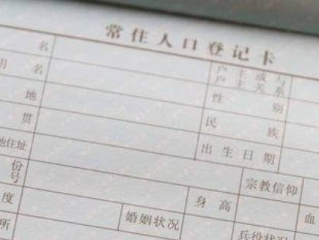 常住人口登记卡
名 户主或与
户主关系
用名 性别
地 民族
贯 出生日期
地住址 宗教信仰
份
号 身高 血
度 婚姻状况 兵役状况
所